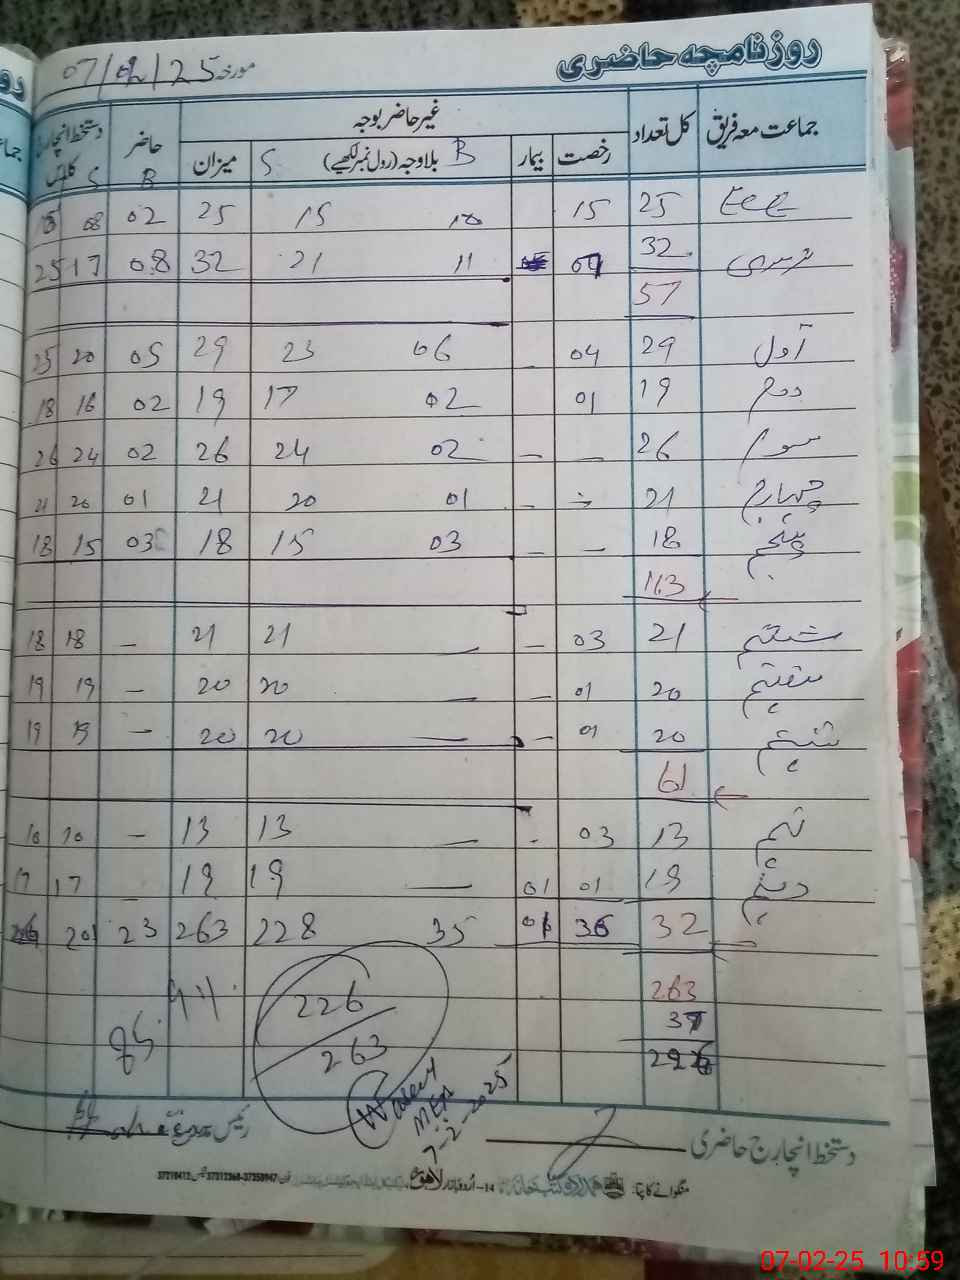 روزنامچہ حاضری
مورخہ 07/02/25
جماعت معہ فریق کل تعداد غیر حاضر بوجہ حاضر دستخط انچارج کلاس
رخصت بیمار بلاوجہ (رول نمبر لکھیے) B S میزان B S
ECE 25 15 10 15 25 02 08
نرسری 32 11 21 32 08 17 25
57
اول 29 04 - 06 23 29 05 20 25
دوم 19 01 02 17 19 02 16 18
سوم 26 - - 02 24 26 02 24 26
چہارم 21 - 01 20 21 01 20 21
پنجم 18 - - 03 15 18 03 15 18
113
ششم 21 03 - — 21 21 - 18 18
ہفتم 20 01 - — 20 20 - 19 19
ہشتم 20 01 - — 20 20 - 19 19
61
نہم 13 03 - — 13 13 - 10 10
دہم 19 01 01 — 19 19 - 17 17
32 36 01 35 228 263 23 201
263
37
226
263
Waleed
MEA
7-2-2025
دستخط انچارج حاضری
رئیس مدرسہ
07-02-25 10:59